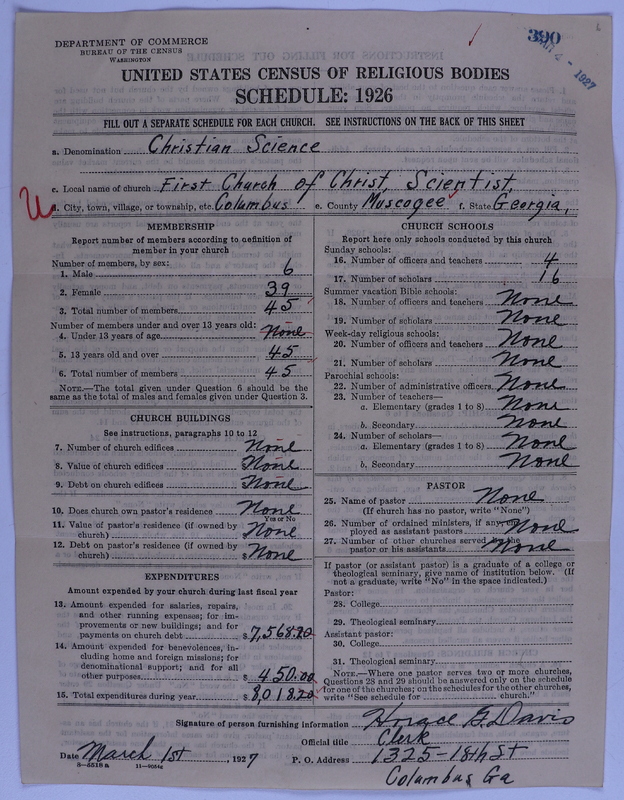 DEPARTMENT OF COMMERCE
BUREAU OF THE CENSUS
WASHINGTON
390
4 - 1927
UNITED STATES CENSUS OF RELIGIOUS BODIES
SCHEDULE: 1926
FILL OUT A SEPARATE SCHEDULE FOR EACH CHURCH. SEE INSTRUCTIONS ON THE BACK OF THIS SHEET
a. Denomination Christian Science
c. Local name of church First Church of Christ, Scientist,
U
d. City, town, village, or township, etc. Columbus e. County Muscogee f. State Georgia,
MEMBERSHIP
Report number of members according to definition of
member in your church
Number of members, by sex:
1. Male 6
2. Female 39
3. Total number of members 45
Number of members under and over 13 years old:
4. Under 13 years of age None
5. 13 years old and over 45
6. Total number of members 45
NOTE.—The total given under Question 6 should be the
same as the total of males and females given under Question 3.
CHURCH BUILDINGS
See instructions, paragraphs 10 to 12
7. Number of church edifices None
8. Value of church edifices $None
9. Debt on church edifices $None
10. Does church own pastor's residence None
Yes or No
11. Value of pastor's residence (if owned by
church) $None
12. Debt on pastor's residence (if owned by
church) $None
EXPENDITURES
Amount expended by your church during last fiscal year
13. Amount expended for salaries, repairs,
and other running expenses; for im-
provements or new buildings; and for
payments on church debt $7,568.20
14. Amount expended for benevolences, in-
cluding home and foreign missions; for
denominational support; and for all
other purposes $450.00
15. Total expenditures during year $8,018.20
CHURCH SCHOOLS
Report here only schools conducted by this church
Sunday schools:
16. Number of officers and teachers 4
17. Number of scholars 16
Summer vacation Bible schools:
18. Number of officers and teachers None
19. Number of scholars None
Week-day religious schools:
20. Number of officers and teachers None
21. Number of scholars None
Parochial schools:
22. Number of administrative officers None
23. Number of teachers—
a. Elementary (grades 1 to 8) None
b. Secondary None
24. Number of scholars—
a. Elementary (grades 1 to 8) None
b. Secondary None
PASTOR
25. Name of pastor None
(If church has no pastor, write "None")
26. Number of ordained ministers, if any, em-
ployed as assistant pastors None
27. Number of other churches served by the
pastor or his assistants None
If pastor (or assistant pastor) is a graduate of a college or
theological seminary, give name of institution below. (If
not a graduate, write "No" in the space indicated.)
Pastor:
28. College
29. Theological seminary
Assistant pastor:
30. College
31. Theological seminary
NOTE.—Where one pastor serves two or more churches,
Questions 28 and 29 should be answered only on the schedule
for one of the churches; on the schedules for the other churches,
write "See schedule for church."
Signature of person furnishing information Horace G. Davis
Official title Clerk
Date March 1st, 1927 P. O. Address 1325-18th St
8—5518a 11—9054c
Columbus Ga